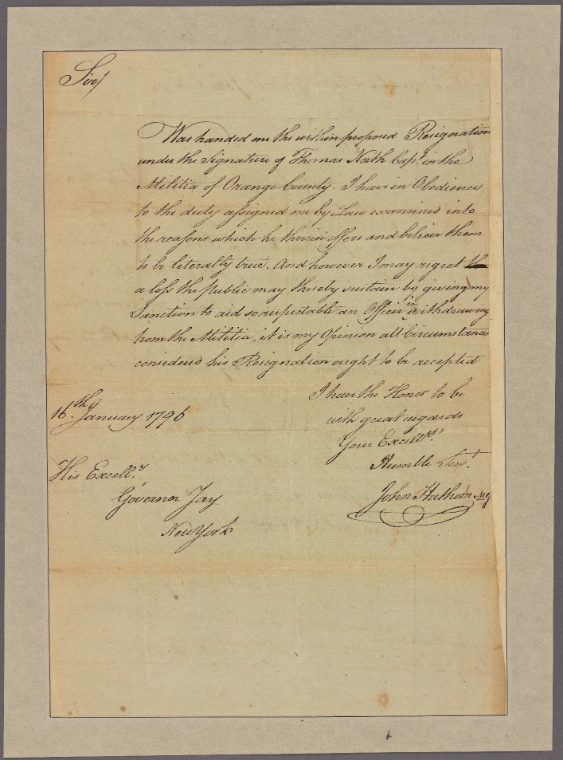 Sir/
Was handed me the within proposed Resignation
under the Signature of Thomas North Capt. in the
Militia of Orange County. I have in Obedience
to the duty assigned me by Law examined into
the reasons which he therein offers and believe them
to be literally true. And however I may regret
a loss the public may thereby sustain by giving my
Sanction to aid so respectable an Officer in withdrawing
from the Militia, it is my Opinion all Circumstances
considered his Resignation ought to be accepted
I have the Honor to be
with great regards
Your Excell.ys
Humble Serv.t
John Hathorn
16.th January 1796
His Excell.y
Governor Jay
New York